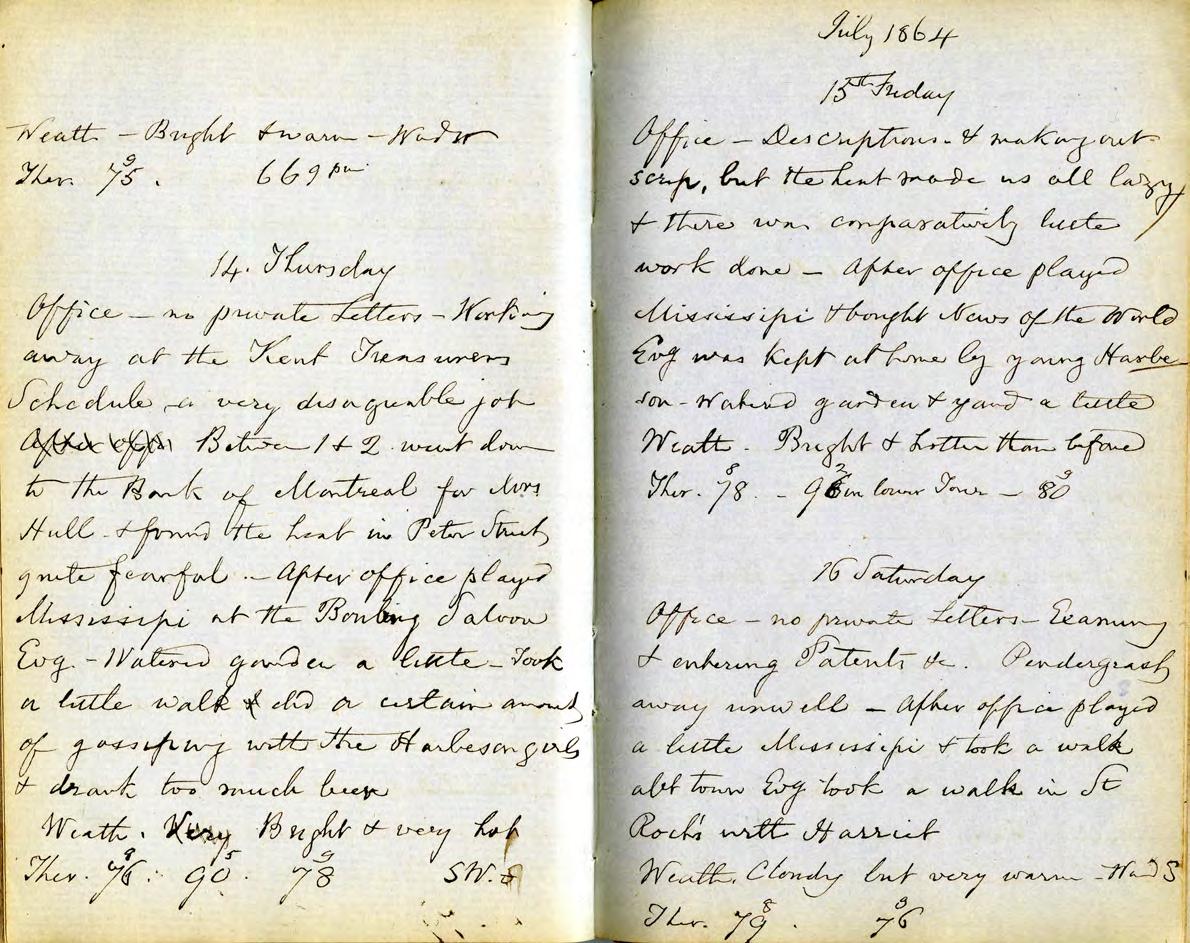 Weath - Bright & warm - Wind W
Ther. 75 9 . 669 pm
14. Thursday
Office - no private Letters - Working
away at the Kent Treasurers
Schedule - a very disagreeable job
After office Between 1 & 2 went down
to the Bank of Montreal for Mrs
Hull - & found the heat in Peter Street
quite fearful - After office played
Mississipi at the Bowling Saloon
Evg - Watered garden a little - Took
a little walk & did a certain amount
of gossiping with the Harbeson girls
& drank too much beer
Weath. Very Bright & very hot
Ther. 76 8 . 90 5 78 9 SW.
July 1864
15th Friday
Office - Descriptions - & making out
scrip, but the heat made us all lazy
& there was comparatively little
work done - After office played
Mississipi & bought News of the World
Evg was kept at home by young Harbe-
son - Watered garden & yard a little
Weath - Bright & hotter than before
Ther. 78 8 - 92 in lower Town - 80 9
16 Saturday
Office - no private Letters - Examing
& entering Patents &c. Pendergrast
away unwell - After office played
a little Mississipi & took a walk
abt town Evg took a walk in St
Roch's with Harriet
Weath. Cloudy but very warm - Wind S
Ther. 79 8 . 76 9